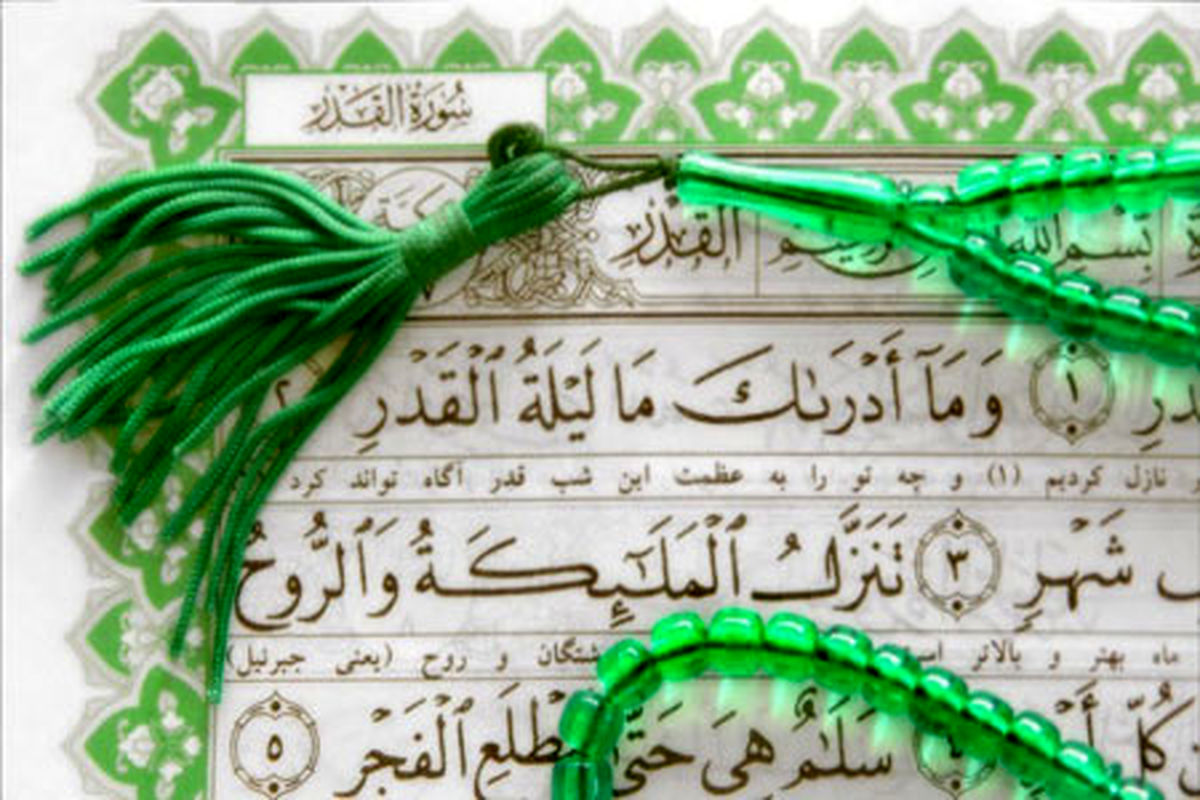 سُورَةُ القَدْرِ
بِسْمِ اللهِ القَدْرِ
١ وَمَآ أَدْرَىٰكَ مَا لَيْلَةُ ٱلْقَدْرِ ٢
نازل کردیم (۱) و چه تو را به عظمت این شب قدر آگاه تواند کرد
شَهْرٍ ٣ تَنَزَّلُ ٱلْمَلَٰٓئِكَةُ وَٱلرُّوحُ
ماه بهتر و بالاتر و روح (یعنی جبرئیل)
كُلِّ سَلَٰمٌ هِيَ حَتَّىٰ ٱلْفَجْرِ ٥